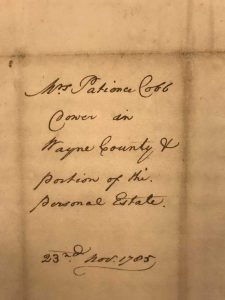 Mrs Patience Cobb
Dower in
Wayne County &
portion of the
Personal Estate.
23rd Nov. 1785